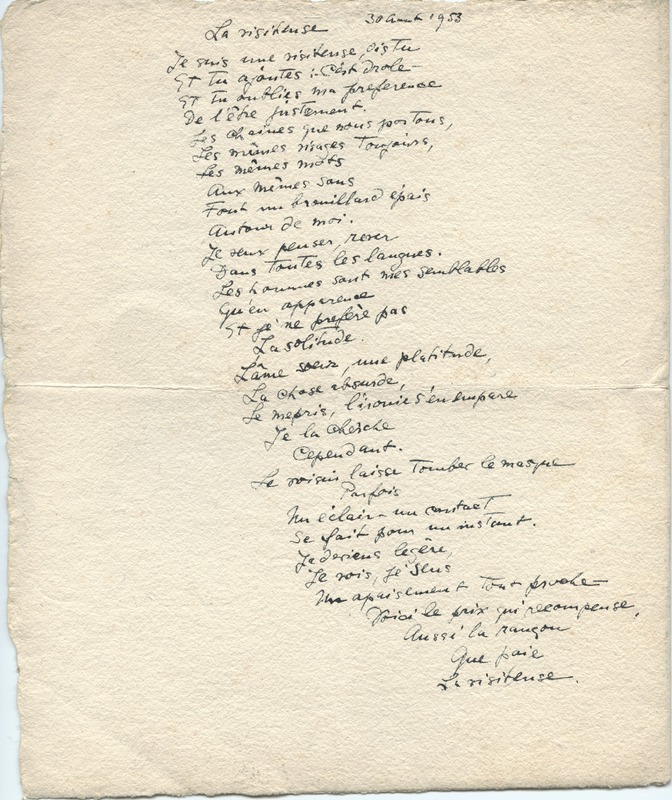 La visiteuse 30 Aout 1953
Je suis une visiteuse, dis tu
Et tu ajoutes :- C'est drole -
Et tu oublies ma preference
De l'être justement.
Les chaines que nous portons,
Les mêmes visages toujours,
Les mêmes mots
Aux mêmes sons
Font un brouillard épais
Autour de moi.
Je veux penser, rever
Dans toutes les langues.
Les hommes sont mes semblables
Qu'en apparence
Et je ne prefère pas
La solitude.
L'âme soeur, une platitude,
La chose absurde,
Le mepris, l'ironie s'en empare
Je la cherche
Cependant.
Le voisin laisse tomber le masque
Parfois
Un éclair - un contact
Se fait pour un instant.
Je deviens legère,
Je vois, je sens
Un apaisement tout proche -
Voici le prix qui recompense,
Aussi la rançon
Que paie
La visiteuse.